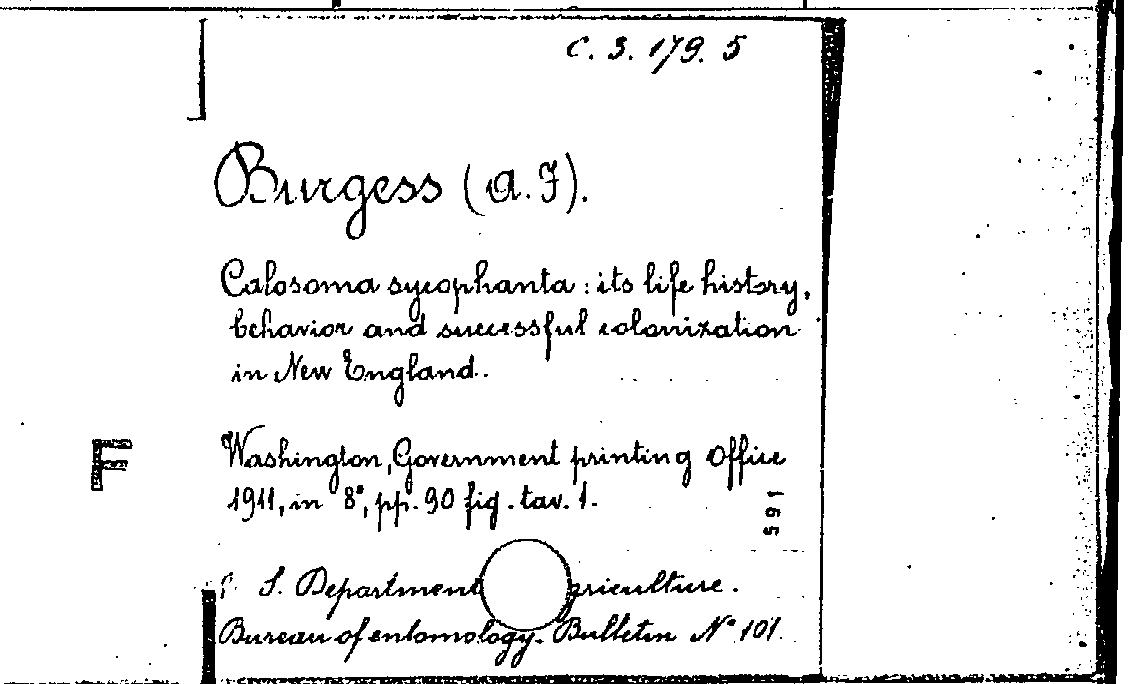 C. 3. 179. 5
Burgess (A.F).
Calosoma sycophanta : its life history,
behavior and successful colonization
in New England.
Washington, Government printing office
1911, in 8°, pp. 90 fig. tav. 1.
F
195
S. Department griculture.
Bureau of entomology. Bulletin N° 101.